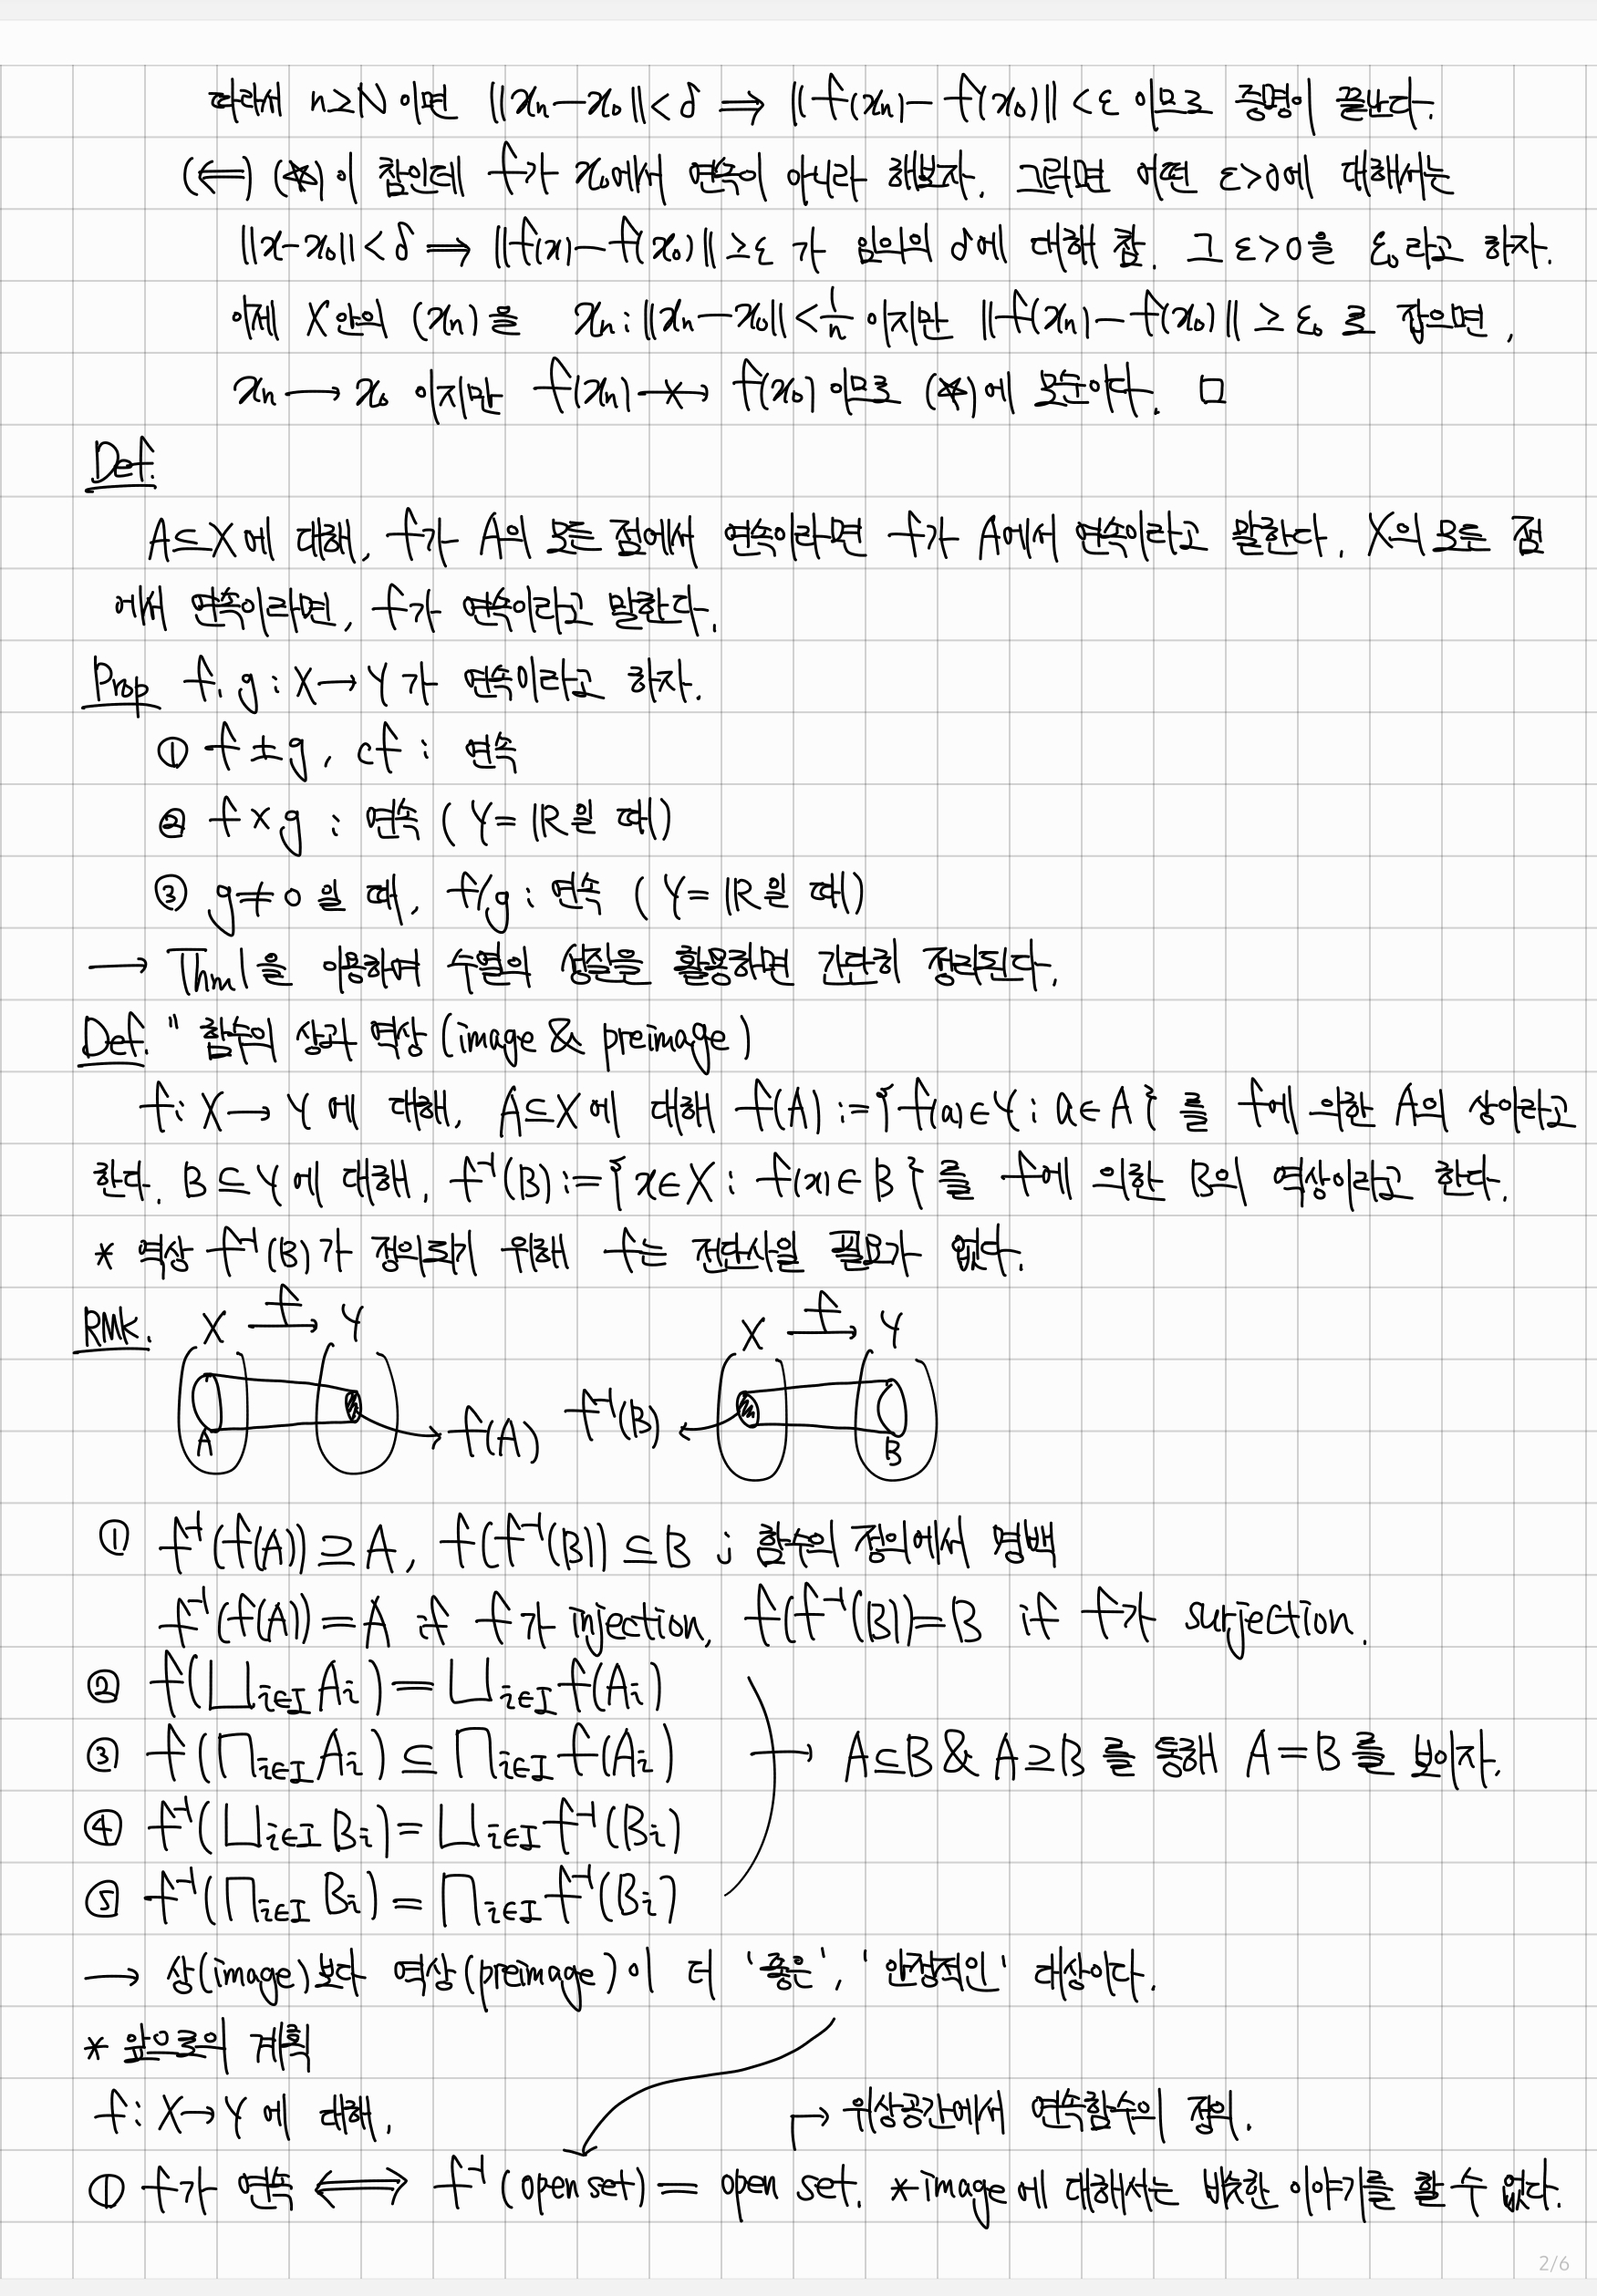 따라서 n≥N 이면 ||xₙ-x₀||<δ ⟹ ||f(xₙ)-f(x₀)||<ε 이므로 증명이 끝난다.
(⟸) (★)이 참인데 f가 x₀에서 연속이 아니라 해보자. 그러면 어떤 ε>0에 대해서는
||x-x₀||<δ ⟹ ||f(x)-f(x₀)||≥ε 가 임의의 δ에 대해 참. 그 ε>0을 ε₀라고 하자.
이제 X안의 (xₙ)을 xₙ:||xₙ-x₀||<1/n 이지만 ||f(xₙ)-f(x₀)||≥ε₀로 잡으면,
xₙ⟶x₀ 이지만 f(xₙ)↛f(x₀) 이므로 (★)에 모순이다. □
Def.
A⊆X에 대해, f가 A의 모든 점에서 연속이라면 f가 A에서 연속이라고 말한다. X의 모든 점
에서 연속이라면, f가 연속이라고 말한다.
Prop f, g : X→Y가 연속이라고 하자.
① f±g, cf : 연속
② f×g : 연속 (Y=ℝ일 때)
③ g≠0일 때, f/g : 연속 (Y=ℝ일 때)
⟶ Thm1을 이용하여 수열의 성질을 활용하면 간단히 정리된다.
Def. " 함수의 상과 역상 (image & preimage)
f: X⟶Y에 대해, A⊆X에 대해 f(A):={f(a)∈Y : a∈A}를 f에 의한 A의 상이라고
한다. B⊆Y에 대해, f⁻¹(B):={x∈X : f(x)∈B}를 f에 의한 B의 역상이라고 한다.
* 역상 f⁻¹(B)가 정의되기 위해 f는 전단사일 필요가 없다.
RMK. X f⟶ Y X f⟶ Y
A f(A) f⁻¹(B) B
① f⁻¹(f(A))⊇A, f(f⁻¹(B))⊆B ; 함수의 정의에서 명백
f⁻¹(f(A))=A if f가 injection, f(f⁻¹(B))=B if f가 surjection.
② f(⋃ᵢ∈I Aᵢ)=⋃ᵢ∈I f(Aᵢ)
③ f(⋂ᵢ∈I Aᵢ)⊆⋂ᵢ∈I f(Aᵢ) ⟶ A⊆B & A⊇B를 통해 A=B를 보이자.
④ f⁻¹(⋃ᵢ∈I Bᵢ)=⋃ᵢ∈I f⁻¹(Bᵢ)
⑤ f⁻¹(⋂ᵢ∈I Bᵢ)=⋂ᵢ∈I f⁻¹(Bᵢ)
⟶ 상(image)보다 역상(preimage)이 더 '좋은', '안정적인' 대상이다.
* 앞으로의 계획
f: X→Y에 대해, ↱ 위상공간에서 연속함수의 정의.
① f가 연속 ⟺ f⁻¹(open set) = open set. *image에 대해서는 비슷한 이야기를 할 수 없다.
2/6